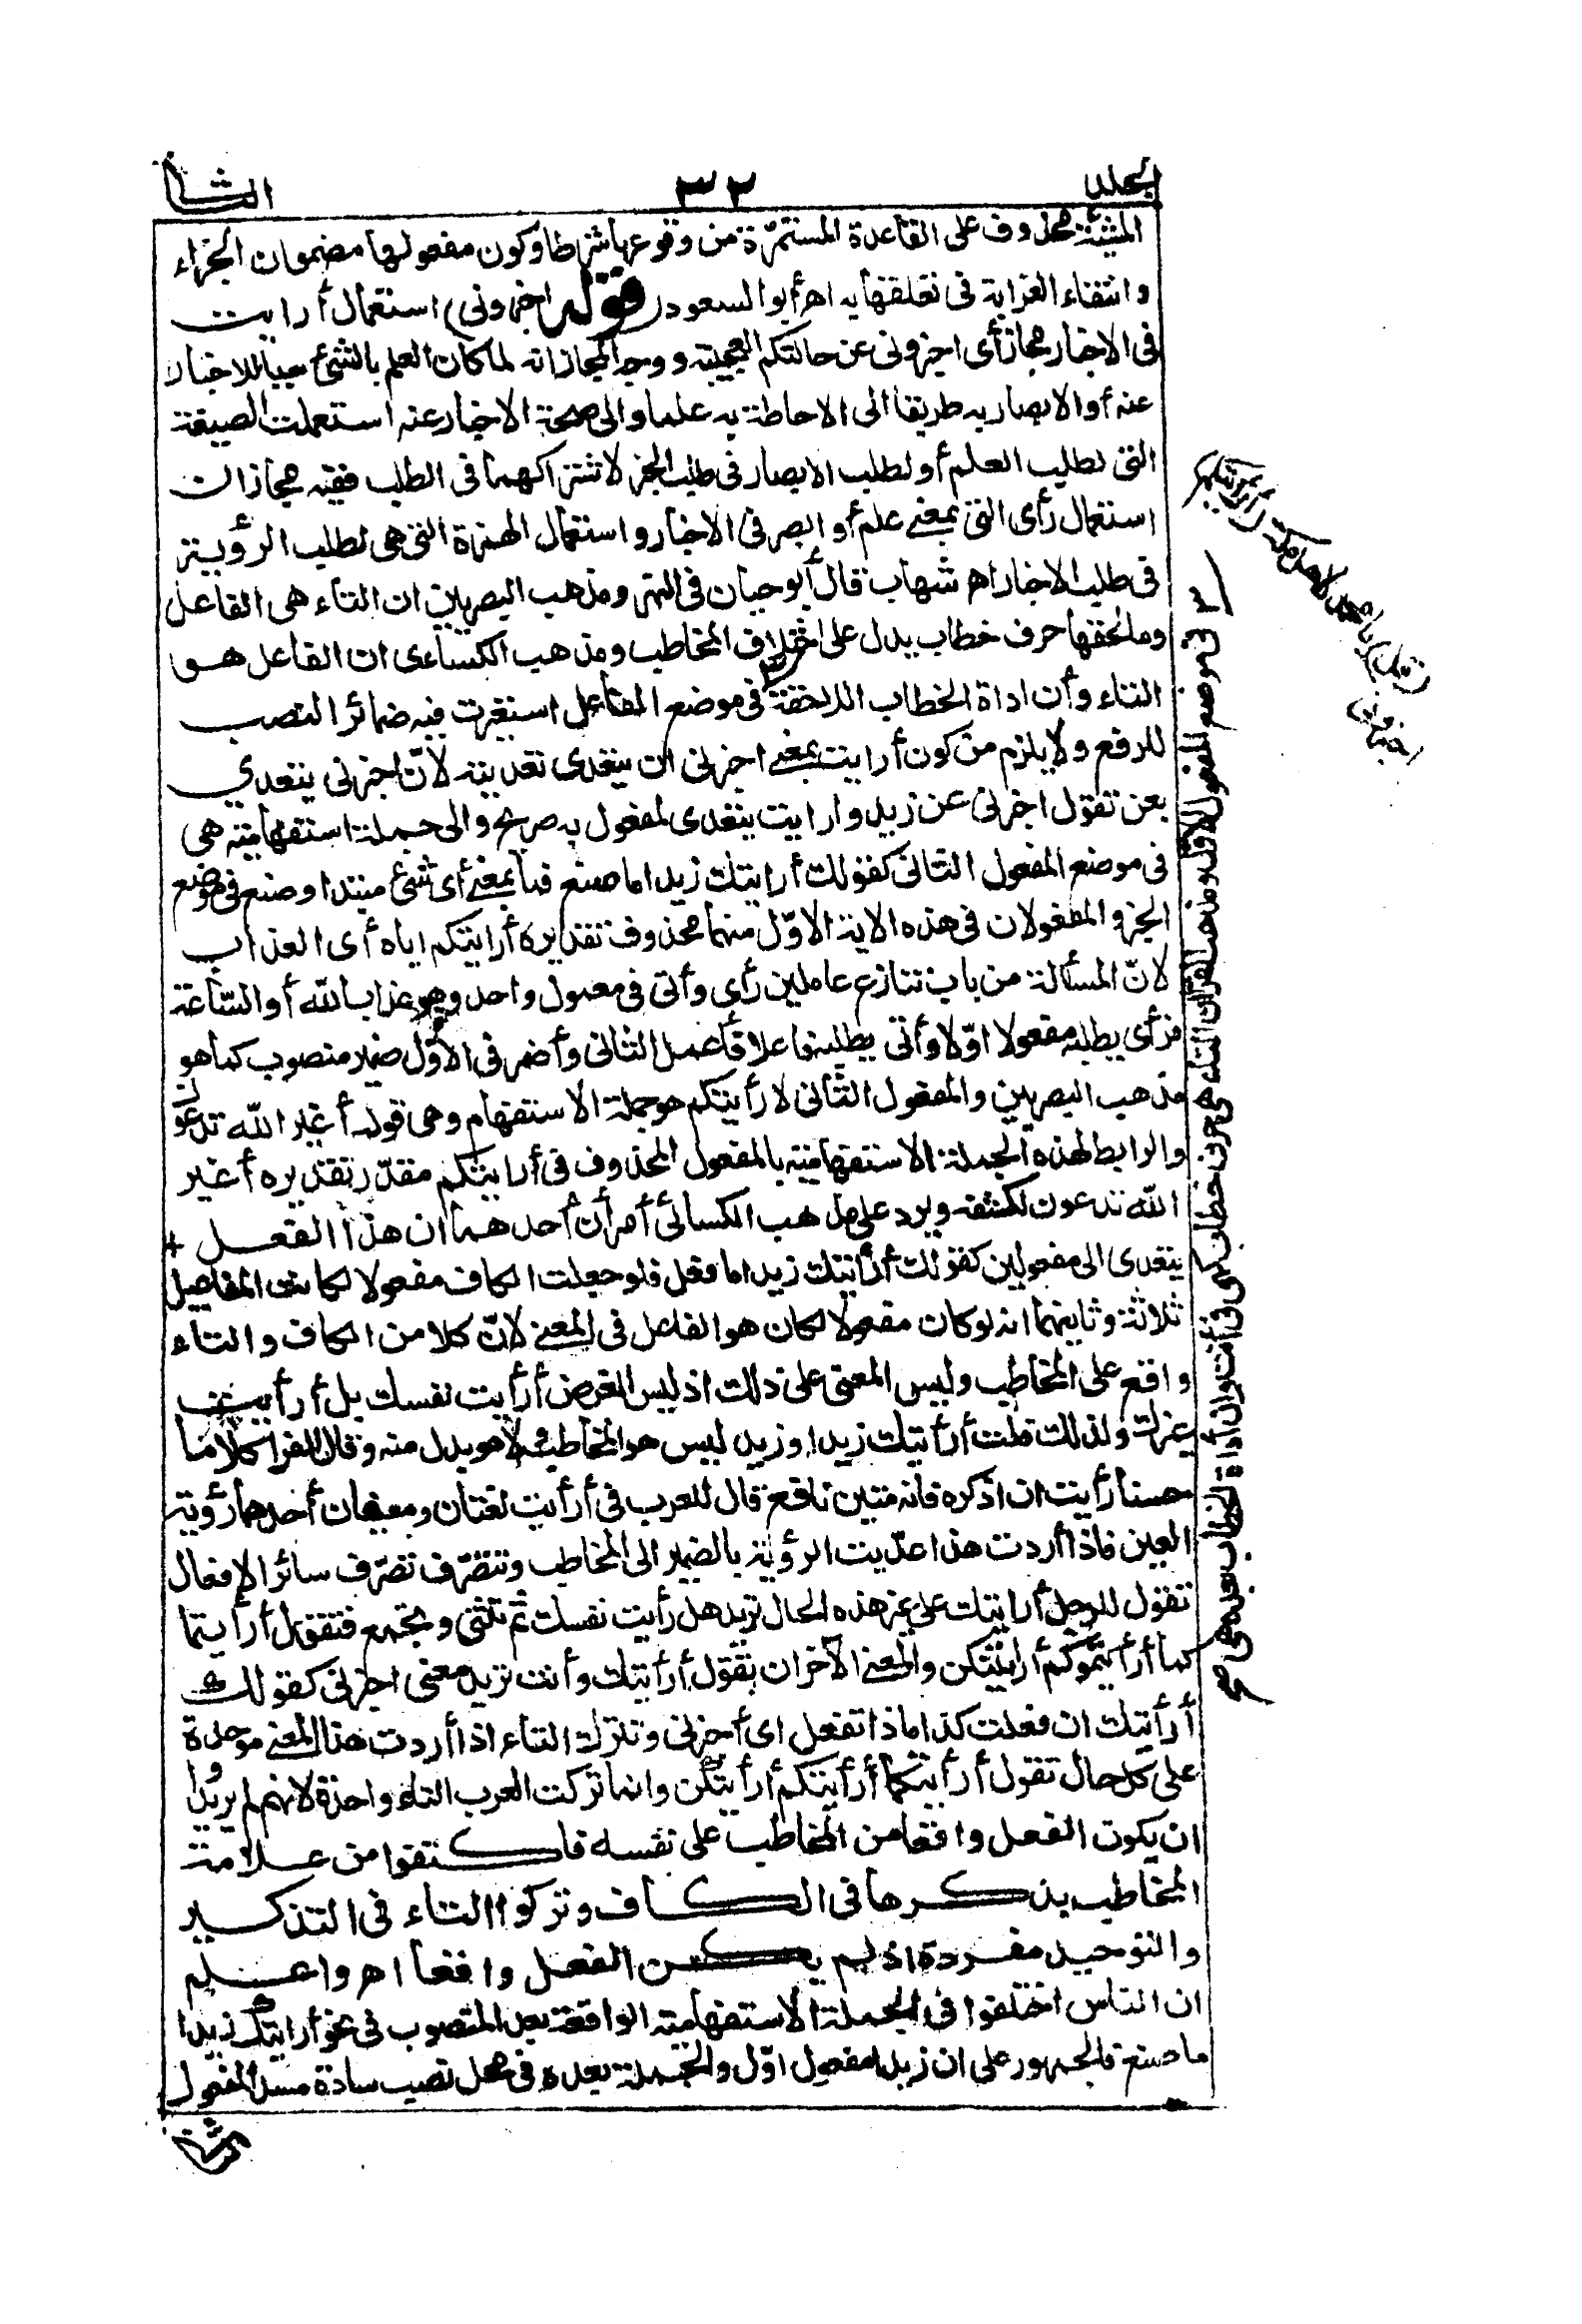 الجلد ٣٢ الثا
المشيئة محذوف على القاعدة المستمرّة من وقوعها شرطا وكون مفعولها مضمون الجزاء
وانتفاء الغرابة فى تعلقها به اهر أبو السعود (قوله اخبرونى) استعمال أرايت
فى الاخبار مجاز أى اخبرونى عن حالتكم العجيبة ووجه المجاز انه لما كان العلم بالشئ سببا للاخبار
عنه أو الابصار به طريقا الى الاحاطة به علما والى صحة الاخبار عنه استعملت الصيغة
التى لطلب العلم أو لطلب الابصار فى طلب الخبر لاشتراكهما فى الطلب ففيه مجازان
استعمال رأى التى بمعنى علم أو ابصر فى الاخبار واستعمال الهمزة التى هى لطلب الرؤية
فى طلب الاخبار اهر شهاب قال أبو حيان فى النهر ومذهب البصريين ان التاء هى الفاعل
وما لحقها حرف خطاب يدل على اختلاف المخاطب ومذهب الكساءى ان الفاعل هو
التاء وأن اداة الخطاب اللاحقة فى موضع الفاعل استغيرت فيه ضمائر النصب
للرفع ولا يلزم من كون أرايت بمعنى اخبرنى ان يتعدى تعديته لانّ اخبرنى يتعدي
بعن تقول اخبرنى عن زيد وارايت يتعدى لمفعول به صريح والى جملة استفهامية هى
فى موضع المفعول الثانى كقولك أرايتك زيدا ما صنع فما بمعنى أى شئ مبتدا وصنع فى موضع
الخبر والمفعولان فى هذه الاية الاوّل منهما محذوف تقديره أرايتكم اياه أى العذاب
لانّ المسألة من باب تنازع عاملين رأى وأتى فى معمول واحد وهو عذاب الله أو السّاعة
فرأى يطلبه مفعولا اوّلا وأتى يطلبه فاعلا فأعمل الثانى وأضمر فى الاوّل ضمير منصوب كما هو
مذهب البصريين والمفعول الثّانى لارأيتكم هو جملة الاستفهام وهى قوله أغير الله تدعون
والرابط لهذه الجملة الاستفهامية بالمفعول المحذوف فى أرايتكم مقدّر تقديره أغير
الله تدعون لكشفه ويرد على مذهب الكسائى أمرأن أحدهما ان هذا الفعل +
يتعدى الى مفعولين كقولك أرأيتك زيدا ما فعل فلو جعلت الكاف مفعولا لكانت المفاعيل
ثلاثة وثانيهما انه لو كان مفعولا لكان هو الفاعل فى المعنى لانّ كلا من الكاف والتاء
واقع على المخاطب وليس المعنى على ذلك اذ ليس الغرض أرأيت نفسك بل أرأيت
غيرك ولذلك قلت أرأيتك زيدا وزيد ليس هو المخاطب ولا هو بدل منه وقال الفراء كلاما
حسنا رأيت ان اذكره فانه متين نافع قال للعرب فى أرأيت لغتان ومعنيان أحدهما رؤية
العين فاذا أردت هذا عدّيت الرؤية بالضمير الى المخاطب وتتصرّف تصرّف سائر الافعال
تقول للرجل أرايتك على غير هذه الحال تريد هل رأيت نفسك ثم تثنى وتجمع فتقول أرأيتما
كما أرأيتموكم أرايتنكن والمعنى الآخر ان تقول أرأيتك وأنت تريد معنى اخبرنى كقولك
أرأيتك ان فعلت كذا ماذا تفعل اى أخبرنى وتترك التاء اذا أردت هذا المعنى موحدة
على كل حال تقول أرأيتكما أرأيتكم أرأيتكن وانما تركت العرب التاء واحدة لانهم لم يريدوا
ان يكون الفعل واقعا من المخاطب على نفسه فاكتفوا من علامة
المخاطب بذكرها فى الكاف وتركوا التاء فى التذكير
والتوحيد مفردة اذ لم يكن الفعل واقعا اهر واعلم
ان الناس اختلفوا فى الجملة الاستفهامية الواقعة بعد المنصوب فى نحو أرايتك زيدا
ما صنع فالجمهور على ان زيدا مفعول اوّل والجملة بعده فى محل نصب سادة مسد المفعول
٣ فى موضع المفعول الاوّل ومذهب الفراء ان التاء هى حرف خطاب كهى فى أنت وان أداة الخطاب بعده هى